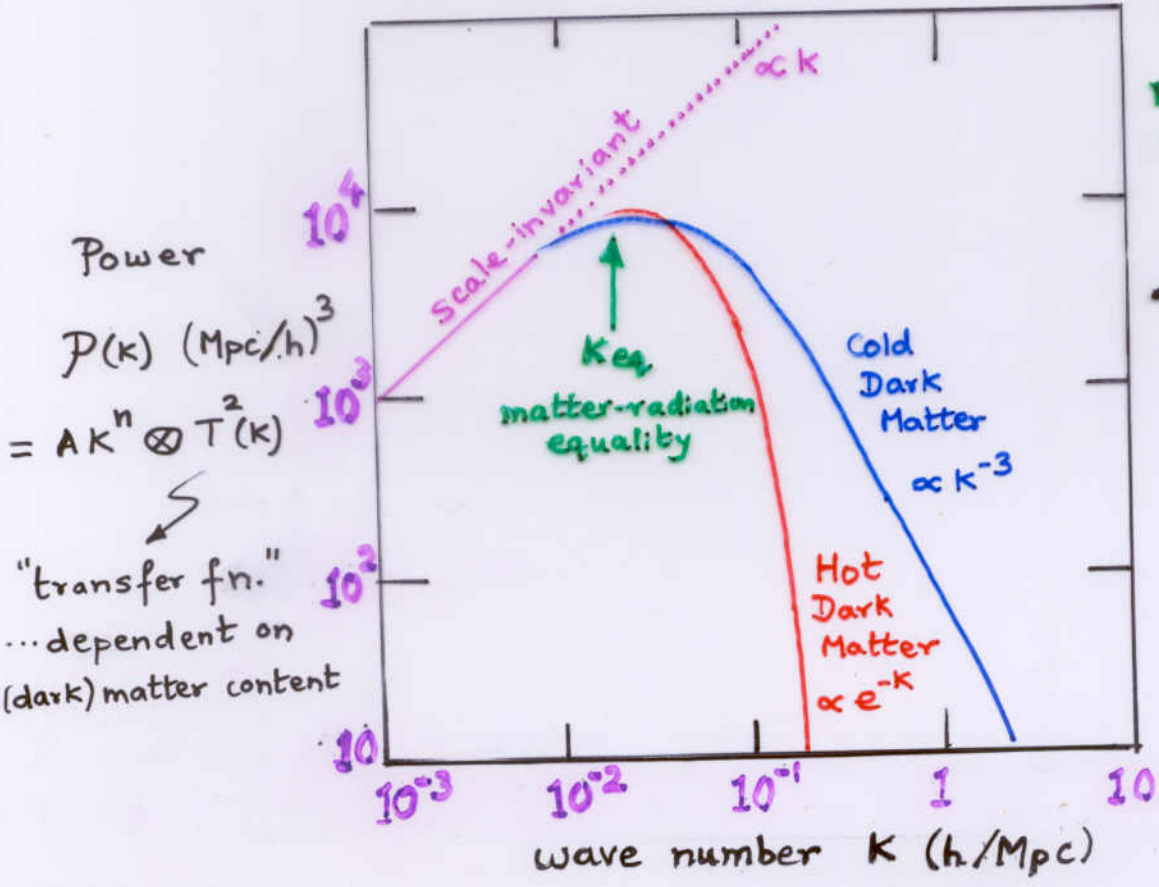 Power
P(k) (Mpc/h)³
= A kⁿ ⊗ T²(k)
"transfer fn."
...dependent on
(dark) matter content
10⁴
10³
10²
10
scale-invariant
∝ k
keq
matter-radiation
equality
Cold
Dark
Matter
∝ k⁻³
Hot
Dark
Matter
∝ e⁻ᵏ
10⁻³ 10⁻² 10⁻¹ 1 10
wave number k (h/Mpc)